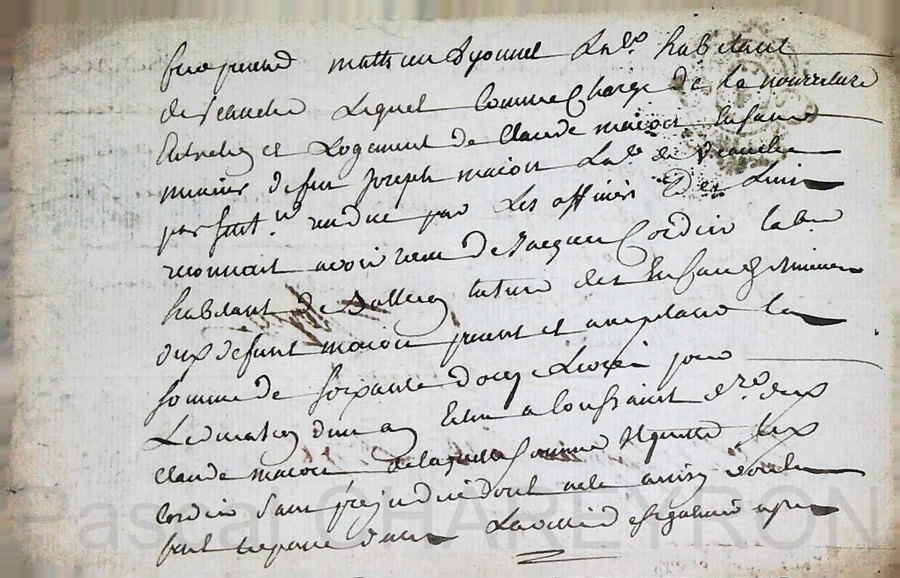 fut present mathieu Lyonnet Lab.r habitant
de veauche Lequel Comme Chargé de la nourriture
Entretien et Logement de Claude maçon Enfant
mineur de feu Joseph maçon Lab.r de veauche
par sent.ce rendue par Les officiers
reconnait avoir reçu de Jacques Cordier labr
habitant tuteur des Enfans Mineurs
dudt defunt macon present et acceptant la
somme de soixante douze Livres pour
un an Echu a toussaint d.r dudt
Claude macon de laquelle somme Il quitte ledt
Cordier sans prejudice dont acte ainsi voulu
fait et passé
Pascal CHAREYRON